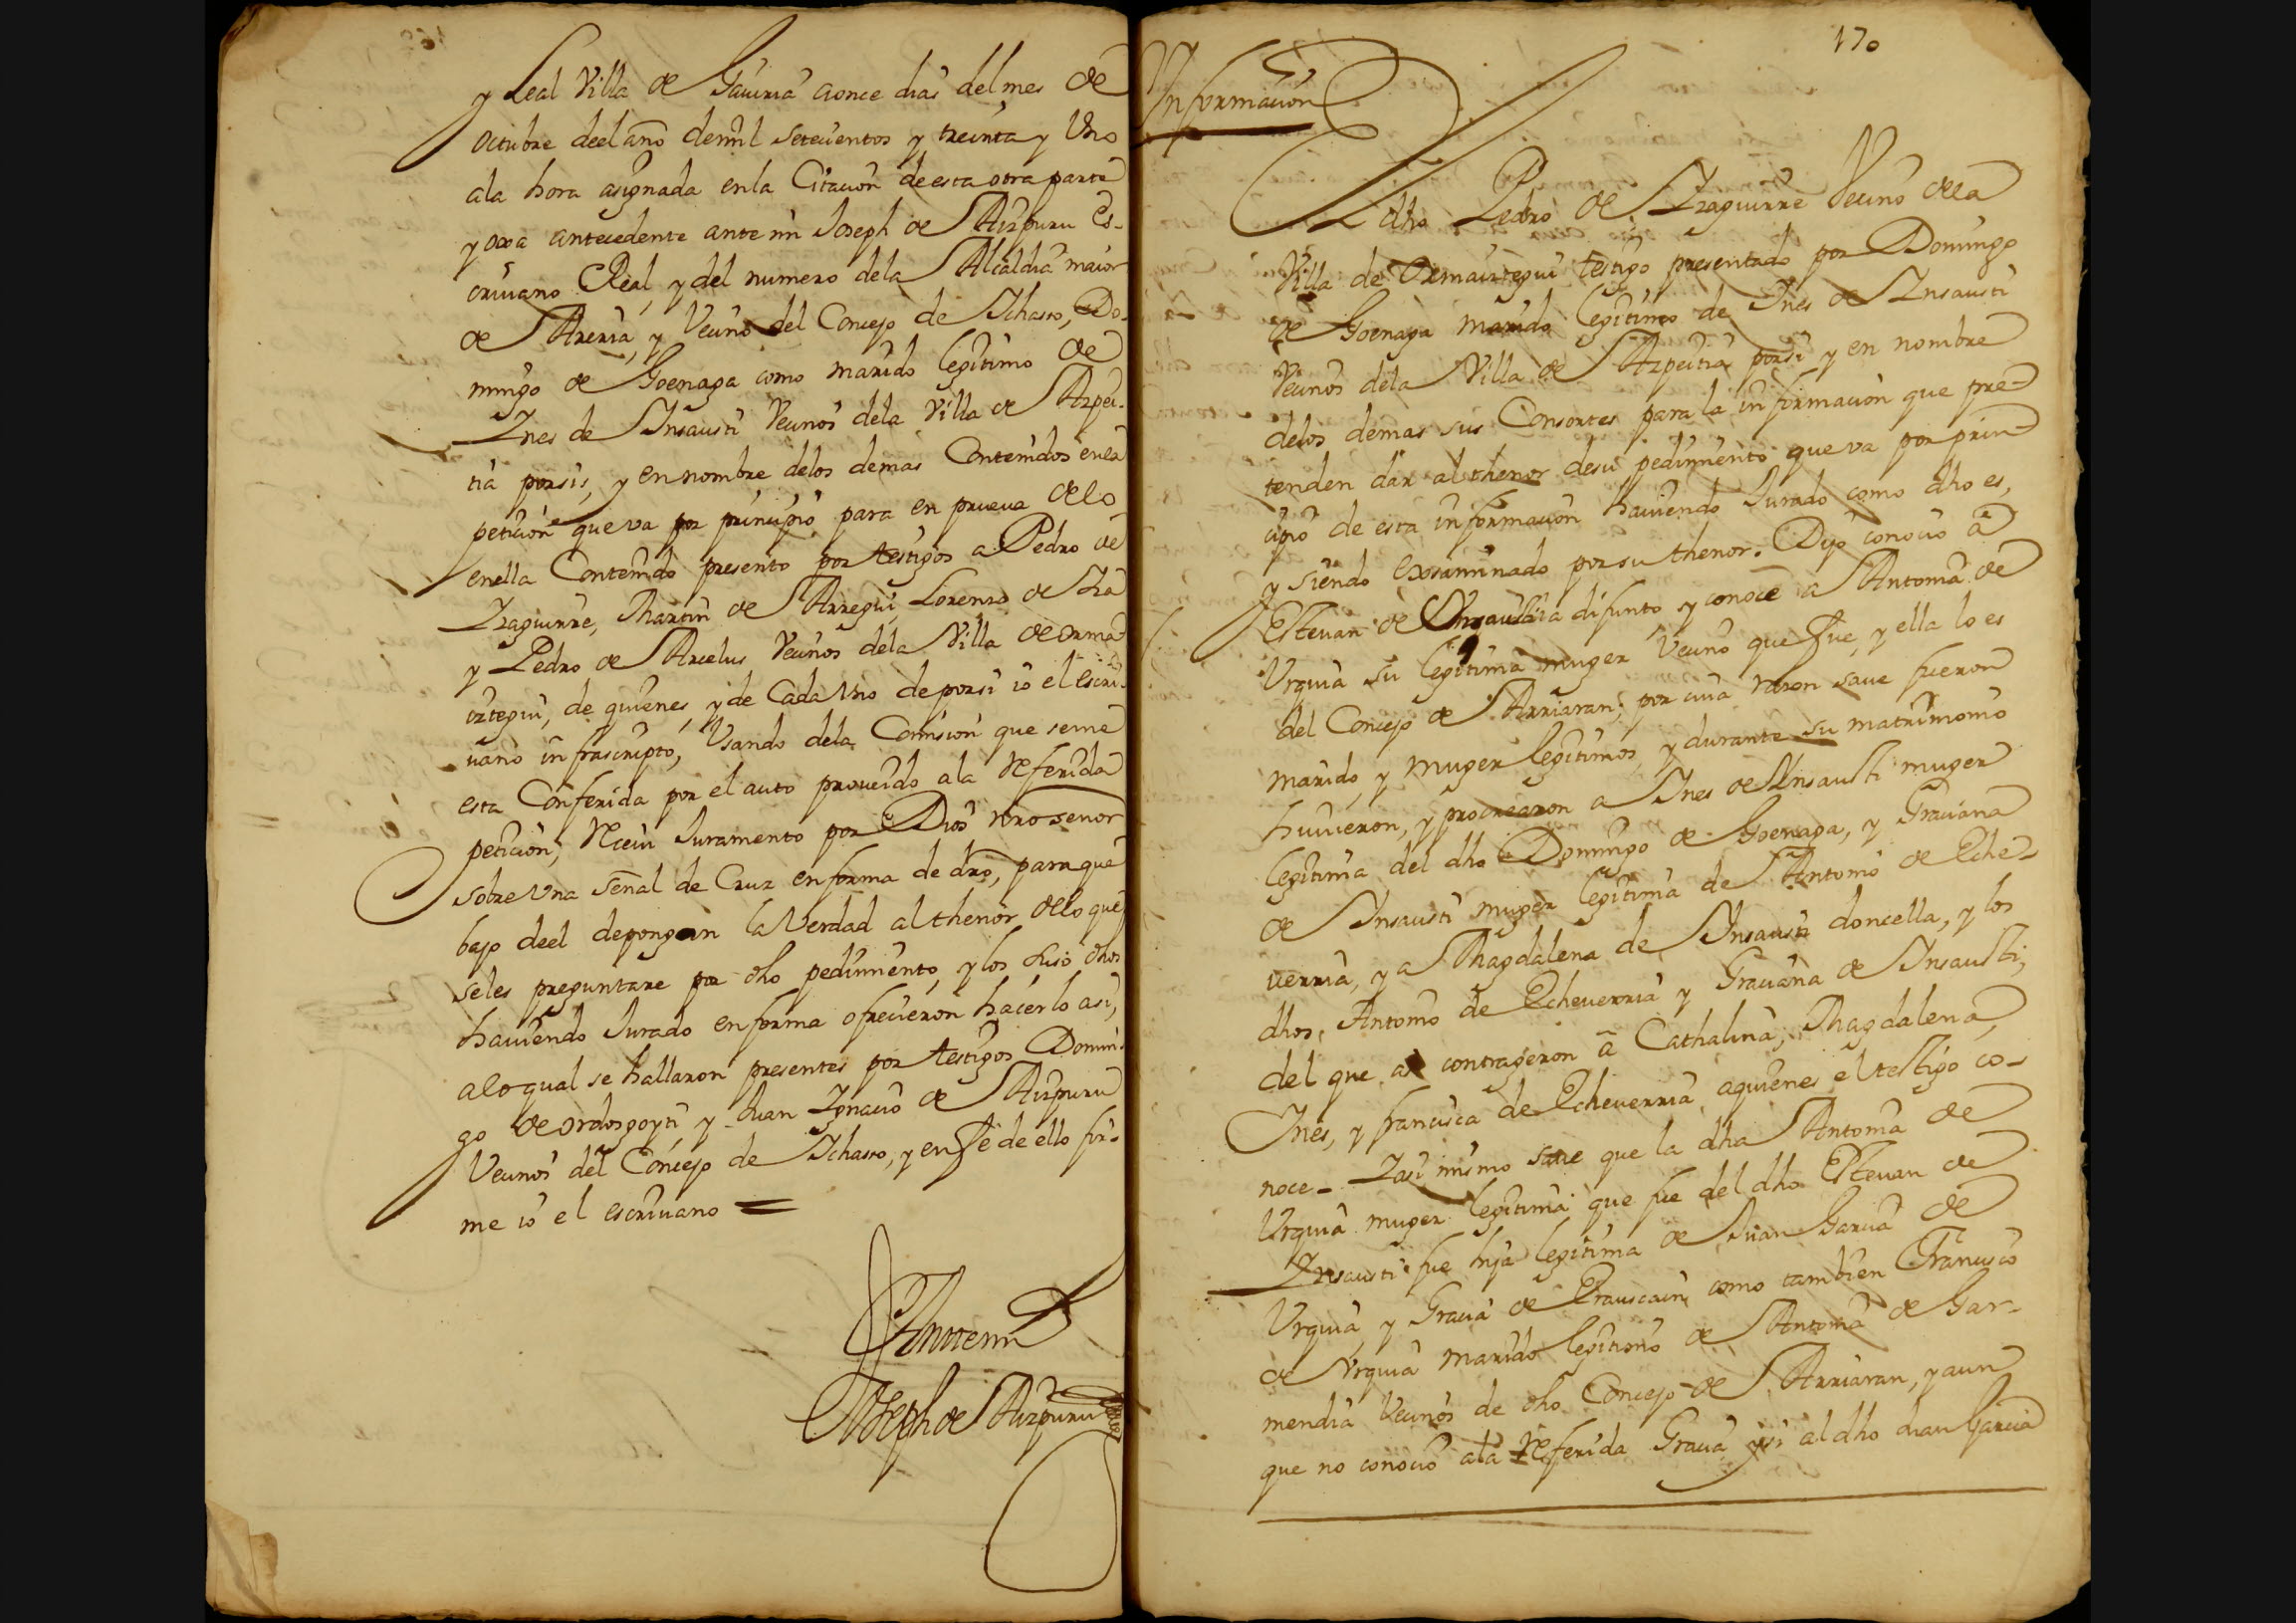 y Leal Villa de Gauiria a once dias del mes de
octubre deel año de mil setecientos y treinta y Uno
ala hora asignada en la Citacion de esta otra parte
y oxa antecedente ante mi Joseph de Aizpuru Es-
criuano Real, y del numero dela Alcaldia maior
de Areria, y Vecino del Concejo de Ichaso, Do-
mingo de Goenaga como marido legitimo de
Ynes de Insausti Vecinos dela Villa de Azpei-
tia por sis, y en nombre delos demas Contenidos en la
peticion que va por principio para en prueva de lo
en ella Contenido presento por testigos a Pedro de
Yzaguirre, Martin de Arregui, Lorenzo de
y Pedro de Arcelus Vecinos dela Villa de orma
iztegui, de quienes, y de Cada Uno de por si io el escri-
uano infrascripto, Usando dela Comision que seme
esta Conferida por el auto proueido ala referida
peticion, Receui Juramento por Dios nro señor
sobre Una señal de Cruz en forma de dro, para que
bajo deel depongan la Verdad al thenor de lo que
seles preguntare por dho pedimiento, y los suso dhos
hauiendo Jurado en forma ofrecieron hacerlo asi,
alo qual se hallaron presentes por testigos Domin-
go de ordosgoyti y Juan Ygnacio de Aizpuru
Vecinos del Concejo de Ichaso, y en fe de ello fir-
me io el escriuano =
Ante mi
Joseph de Aizpuru
170
Ynformacion
El dho Pedro de Yzaguirre Vecino de la
Villa de Ormaiztegui testigo presentado por Domingo
de Goenaga marido legitimo de Ines de Ynsausti
Vecinos dela Villa de Azpeitia por si y en nombre
delos demas sus Consortes para la informacion que pre-
tenden dar al thenor desu pedimiento que va por prin-
cipio de esta informacion hauiendo Jurado como dho es,
y siendo exsaminado por su thenor. Dijo conocio à
Esteuan de Insausti ia difunto y conoce a Antonia de
Vrquia su legitima muger Vecino que fue, y ella lo es
del Concejo de Arriaran; por cuia razon saue fueron
marido, y muger legitimos, y durante su matrimonio
huuieron, y procrearon a Ines de Insausti muger
legitima del dho Domingo de Goenaga, y Graciana
de Insausti muger legitima de Antonio de Eche-
uerria, y a Magdalena de Insausti doncella, y los
dhos, Antonio de Echeuerria y Graciana de Insausti,
del que contrageron à Cathalina, Magdalena,
Ines, y francisca de Echeuerria, aquienes el testigo co-
noce - Yasi mismo saue que la dha Antonia de
Vrquia muger legitima que fue del dho Esteuan de
Ynsausti fue hija legitima de Juan Garcia de
Vrquia, y Gracia de Erauscain, como tambien Francisco
de Vrquia marido legitimo de Antonia de Gar-
mendia Vecinos de dho Concejo de Arriaran, y aun
que no conocio ala referida Gracia, y si al dho Juan Garcia